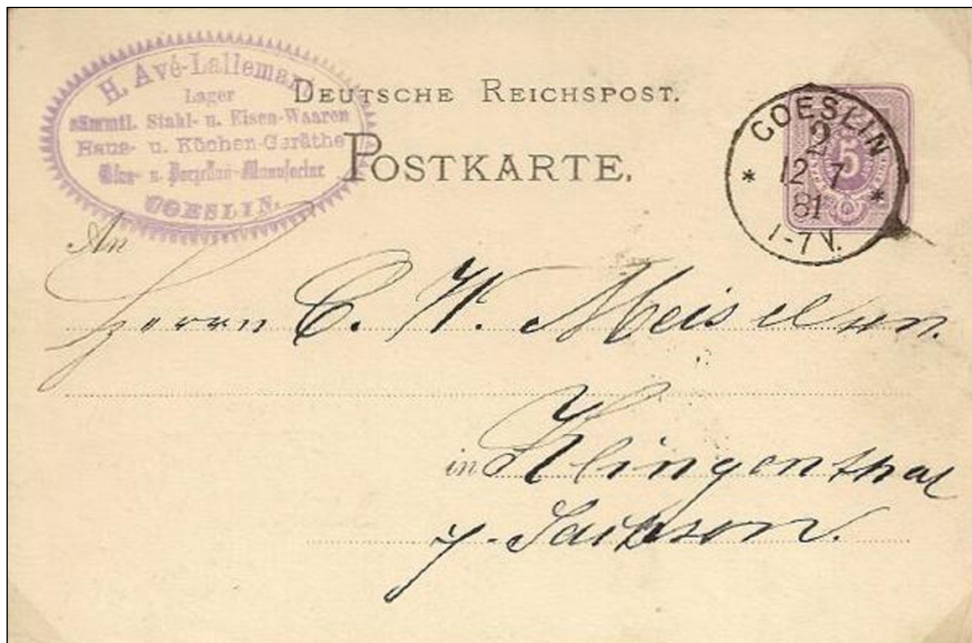 H. Avé-Lallemant
Lager
sämmtl. Stahl- u. Eisen-Waaren
Haus- u. Küchen-Geräthe
Glas- u. Porzellan-Manufactur
COESLIN.
DEUTSCHE REICHSPOST.
POSTKARTE.
COESLIN
2
* 12 7 *
81
1-7 V.
5
An
Herrn C. W. Meisel sen.
in Klingenthal
Sachsen.